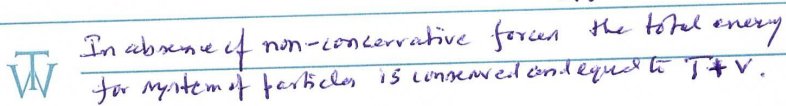 In absence of non-conservative forces the total energy
for system of particles is conserved and equal to T + V.